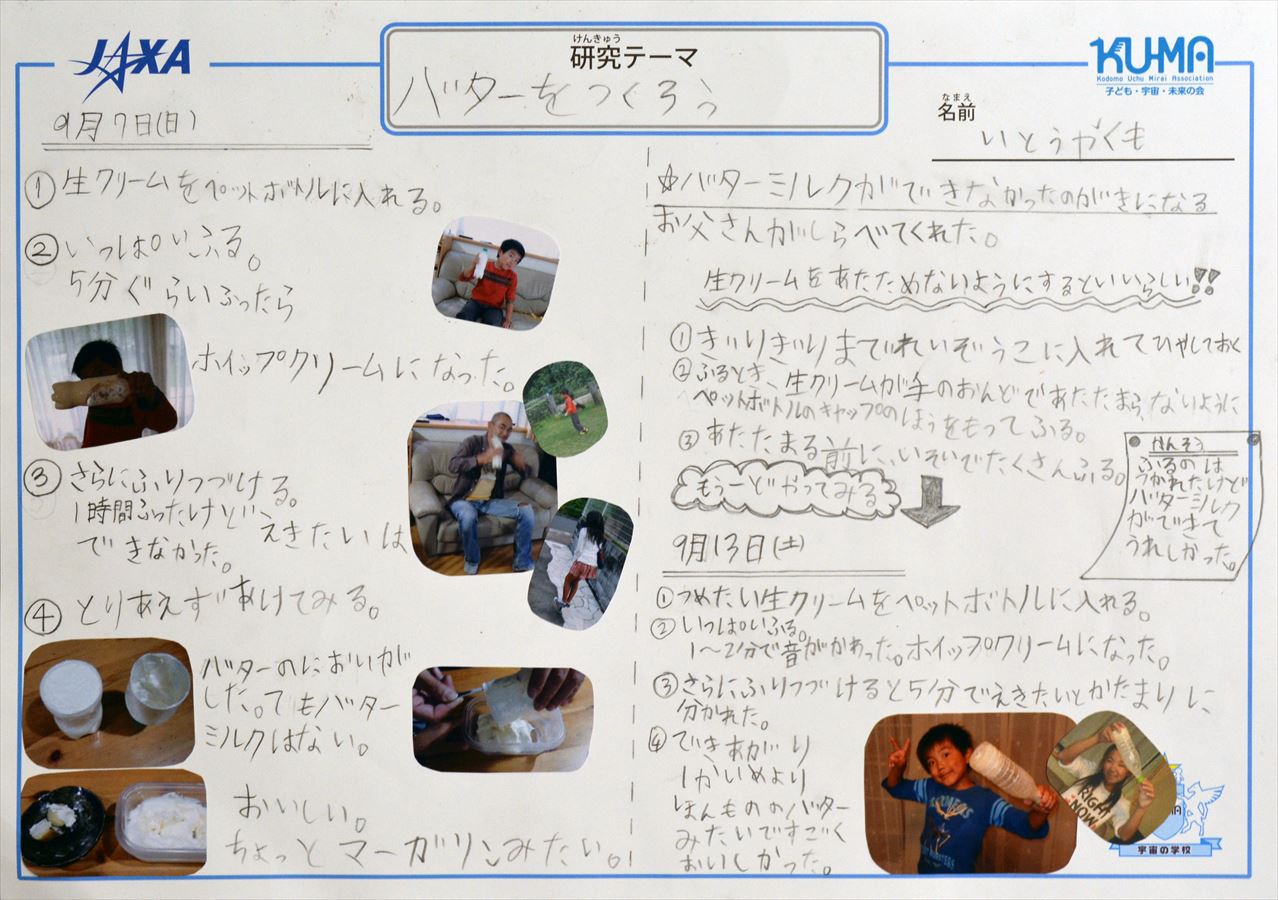 JAXA
けんきゅう
研究テーマ
バターをつくろう
KU-MA
Kodomo Uchu Mirai Association
子ども・宇宙・未来の会
なまえ
名前
いとうがくも
9月7日(日)
①生クリームをペットボトルに入れる。
②いっぱいふる。
5分ぐらいふったら
ホイップクリームになった。
③さらにふりつづける。
1時間ふったけど、えきたいは
できなかった。
④とりあえずあけてみる。
バターのにおいが
した。でもバター
ミルクはない。
おいしい。
ちょっとマーガリンみたい。
☆バターミルクができなかったのがきになる
お父さんがしらべてくれた。
生クリームをあたためないようにするといいらしい!!
①ぎりぎりまでれいぞうこに入れてひやしておく
②ふるとき、生クリームが手のおんどであたたまらないように
ペットボトルのキャップのほうをもってふる。
③あたたまる前に、いそいでたくさんふる。
もう一どやってみる
かんそう
ふるのは
つかれたけど
バターミルク
ができて
うれしかった。
9月13日(土)
①つめたい生クリームをペットボトルに入れる。
②いっぱいふる。
1〜2分で音がかわった。ホイップクリームになった。
③さらにふりつづけると5分でえきたいとかたまりに
分かれた。
④できあがり
1かいめより
ほんもののバター
みたいですごく
おいしかった。
RIGHT
NOW
宇宙の学校